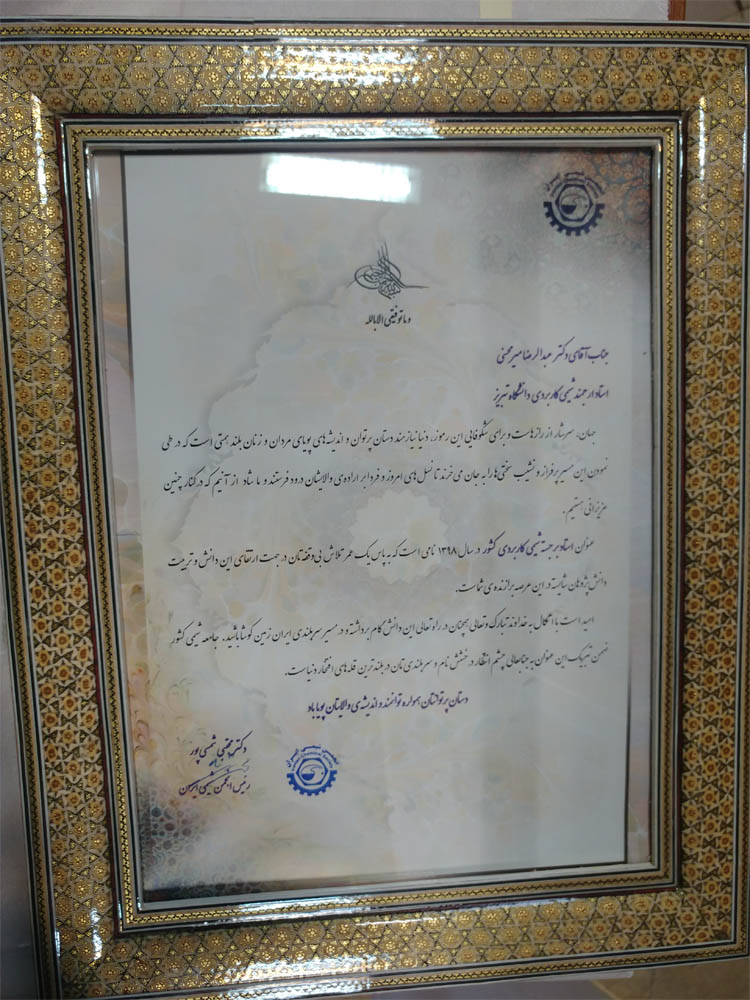 و ما توفیقی الا بالله
جناب آقای دکتر عبدالرضا میرمحسنی
استاد ارجمند شیمی کاربردی دانشگاه تبریز
جهان، سرشار از رازهاست و برای شکوفایی این رموز، دنیا نیازمند دستان پرتوان و اندیشه‌های پویای مردان و زنان بلند همتی است که در طی
نمودن این مسیر پر فراز و نشیب سختی‌ها را به جان می‌خرند تا نسل‌های امروز و فردا بر اراده‌ی والایشان درود فرستند و ما شاد از آنیم که در کنار چنین
عزیزانی هستیم.
عنوان استاد برجسته شیمی کاربردی کشور در سال ۱۳۹۸ نامی است که به پاس یک عمر تلاش بی‌وقفه‌تان در جهت ارتقای این دانش و تربیت
دانش پژوهان شایسته در این عرصه برازنده‌ی شماست.
امید است با اتکال به خداوند تبارک و تعالی همچنان در راه تعالی این دانش گام برداشته و در مسیر سربلندی ایران زمین کوشا باشید. جامعه شیمی کشور
ضمن تبریک این عنوان به جنابعالی چشم انتظار درخشش نام و سربلندی‌تان در بلندترین قله‌های افتخار دنیاست.
دستان پرتوانتان همواره توانمند و اندیشه‌ی والایتان پویا باد
دکتر مجتبی شمسی پور
رئیس انجمن شیمی ایران